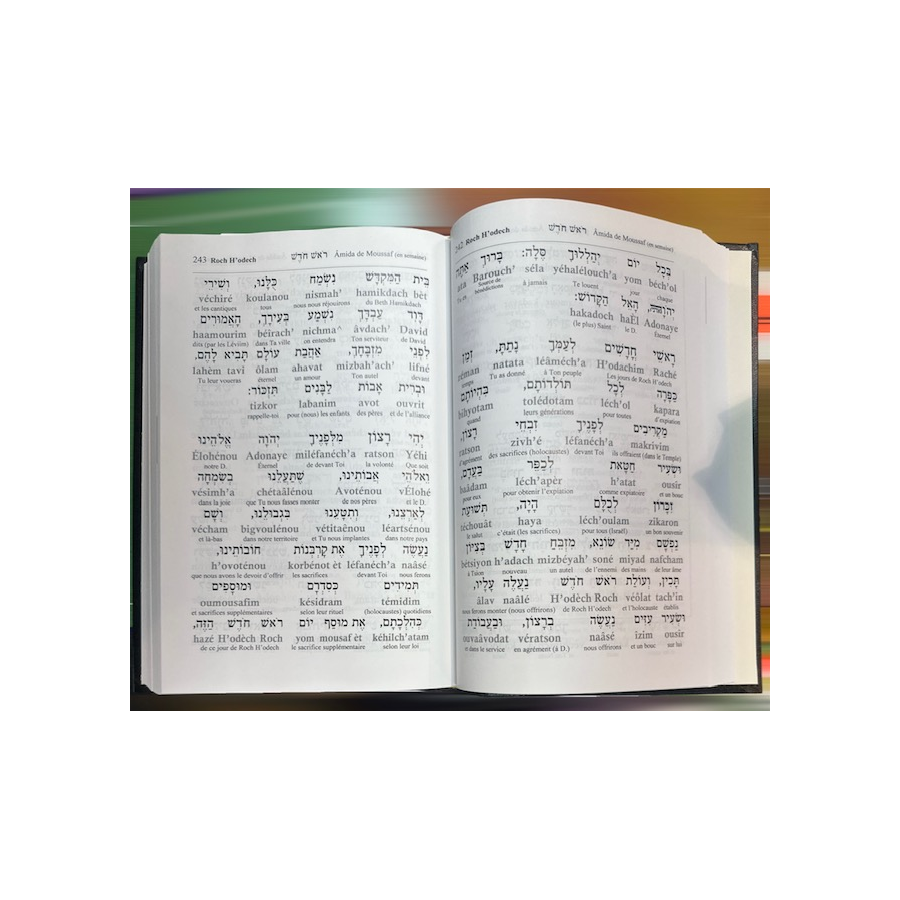 242 Roch H'odech רֹאשׁ חֹדֶשׁ Âmida de Moussaf (en semaine)
בְּכָל יוֹם יְהַלְלוּךָ סֶּלָה: בָּרוּךְ אַתָּה
ata Barouch' séla yéhalélouch'a yom béch'ol
Tu es Source de bénédictions à jamais Te louent jour chaque
הָאֵל הַקָּדוֹשׁ:
hakadoch haÉl Adonaye
(le plus) Saint le D. Éternel
רָאשֵׁי חֳדָשִׁים לְעַמְּךָ נָתַתָּ, זְמַן
zéman natata léâméch'a H'odachim Raché
temps Tu as donné à Ton peuple Les jours de Roch H'odech
כַּפָּרָה לְכָל תּוֹלְדוֹתָם, בִּהְיוֹתָם
bihyotam tolédotàm léch'ol kapara
quand leurs générations pour toutes d'expiation
מַקְרִיבִים לְפָנֶיךָ זִבְחֵי רָצוֹן,
ratson zivh'é léfanéch'a makrivim
d'agrément des sacrifices (holocaustes) devant Toi ils offraient (dans le Temple)
וּשְׂעִיר חַטָּאת לְכַפֵּר בַּעֲדָם,
baâdam léch'apèr h'atat ousir
pour eux pour obtenir l'expiation comme expiatoire et un bouc
זִכָּרוֹן לְכֻלָּם הָיָה, תְּשׁוּעַת
téchouât haya léch'oulam zikaron
le salut c'était (les sacrifices) pour tous (Israël) un bon souvenir
נַפְשָׁם מִיַּד שׂוֹנֵא, מִזְבֵּחַ חָדָשׁ בְּצִיּוֹן
bétsiyon h'adach mizbéyah' soné miyad nafcham
à Tsion nouveau un autel de l'ennemi des mains de leur âme
תָּכִין, וְעוֹלַת רֹאשׁ חֹדֶשׁ נַעֲלֶה עָלָיו,
âlav naâlé H'odèch Roch véôlat tach'in
nous ferons monter (nous offrirons) de Roch H'odech et l'holocauste établis
וּשְׂעִיר עִזִּים נַעֲשֶׂה בְרָצוֹן, וּבַעֲבוֹדַת
ouvaâvodat vératson naâsé izim ousir
et dans le service en agrément (à D.) nous offrirons et un bouc sur lui
243 Roch H'odech רֹאשׁ חֹדֶשׁ Âmida de Moussaf (en semaine)
בֵּית הַמִּקְדָּשׁ נִשְׂמַח כֻּלָּנוּ, וְשִׁירֵי
véchiré koulanou nismah' hamikdach bèt
et les cantiques tous nous nous réjouirons du Beth Hamikdach
דָּוִד עַבְדֶּךָ נִשְׁמַע בְּעִירֶךָ, הָאֲמוּרִים
haamourim béirach' nichma^ âvdach' David
dits (par les Léviim) dans Ta ville on entendra Ton serviteur de David
לִפְנֵי מִזְבְּחֶךָ, אַהֲבַת עוֹלָם תָּבִיא לָהֶם.
lahèm tavi ôlam ahavat mizbah'ach' lifné
Tu leur voueras éternel un amour Ton autel devant
וּבְרִית אָבוֹת לַבָּנִים תִּזְכּוֹר:
tizkor labanim avot ouvrit
rappelle-toi pour (nous) les enfants des pères et de l'alliance
יְהִי רָצוֹן מִלְּפָנֶיךָ יְהֹוָה אֱלֹהֵינוּ
Élohénou Adonaye miléfanéch'a ratson Yéhi
notre D. Éternel de devant Toi la volonté Que soit
וֵאלֹהֵי אֲבוֹתֵינוּ, שֶׁתַּעֲלֵנוּ בְשִׂמְחָה
vésimh'a chétaâlénou Avoténou vÉlohé
dans la joie que Tu nous fasses monter de nos pères et le D.
לְאַרְצֵנוּ, וְתִטָּעֵנוּ בִּגְבוּלֵנוּ, וְשָׁם
vécham bigvoulénou vétitaênou léartsénou
et là-bas dans notre territoire et Tu nous implantes dans notre pays
נַעֲשֶׂה לְפָנֶיךָ אֶת קָרְבְּנוֹת חוֹבוֹתֵינוּ,
h'ovoténou korbénot èt léfanéch'a naâsé
que nous avons le devoir d'offrir les sacrifices devant Toi nous ferons
תְּמִידִים כְּסִדְרָם וּמוּסָפִים
oumousafim késidram témidim
et sacrifices supplémentaires selon leur rituel (holocaustes) quotidiens
כְּהִלְכָתָם, אֶת מוּסַף יוֹם רֹאשׁ חֹדֶשׁ הַזֶּה,
hazé H'odèch Roch yom mousaf èt kéhilch'atam
de ce jour de Roch H'odech le sacrifice supplémentaire selon leur loi